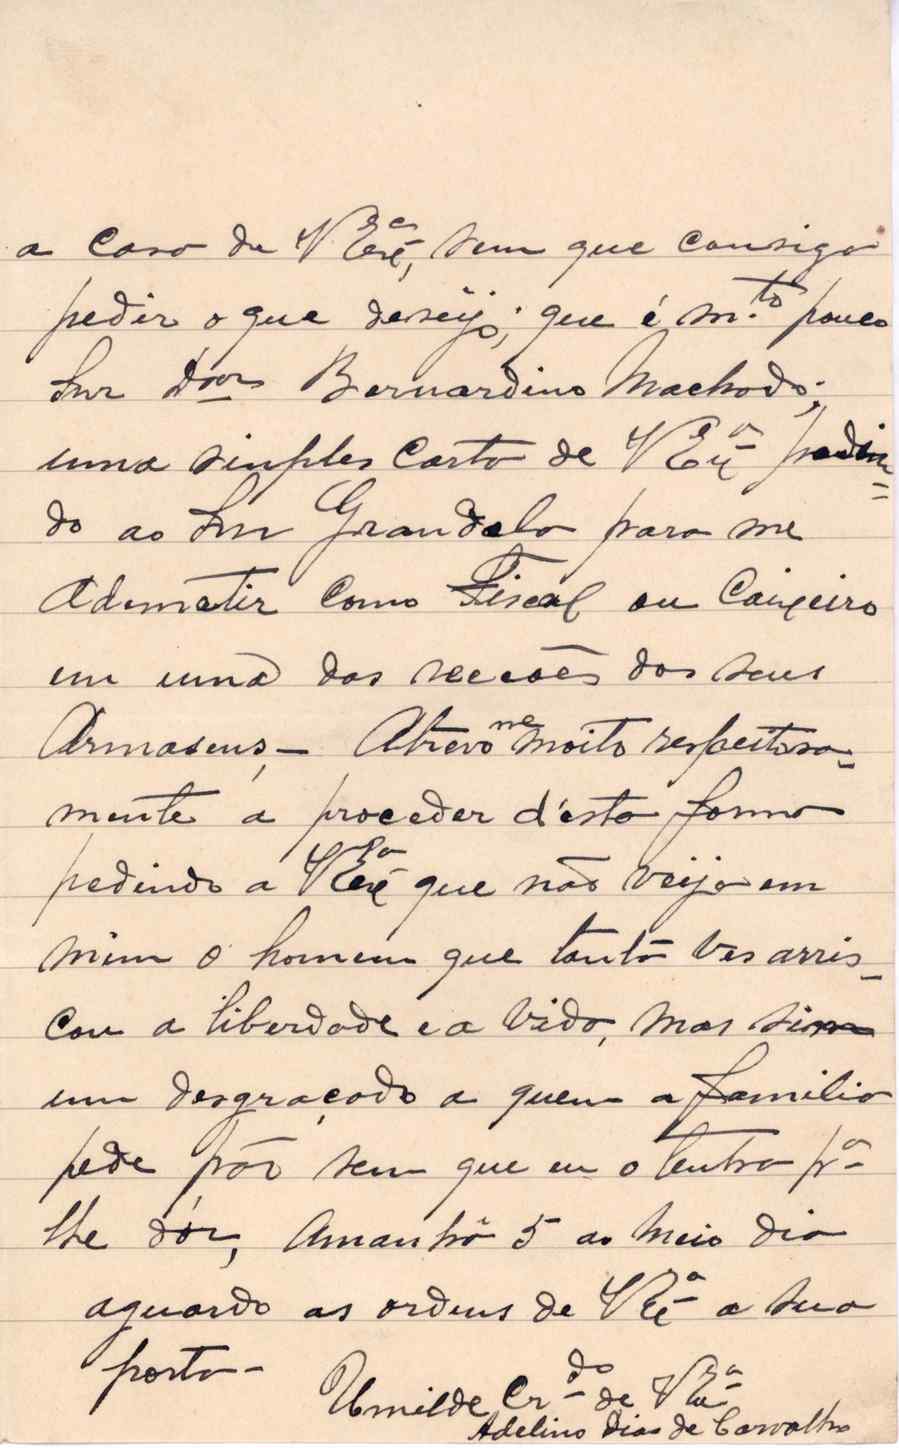 a casa de V Exca, sem que consiga
pedir o que deseijo; que é m.to pouco
Snr Dour Bernardino Machado;
uma simples carta de V Eª pedin=
do ao Snr Grandela para me
Ademetir como Fiscal ou Caixeiro
em uma das secções dos seus
Armaseus,- Atrevo me moito respeitosa=
mente a proceder d'esta forma
pedindo a V Exca que não veija em
mim o homem que tanta ves arris=
cou a liberdade e a vida, mas sim
um desgraçado a quem a familia
pede pão sem que eu o tenha pª
lhe dár, Amanhã 5 ao meio dia
aguardo as ordens de V Exª a sua
porta-
Umilde Cr.do de V Exª
Adelino Dias de Carvalho